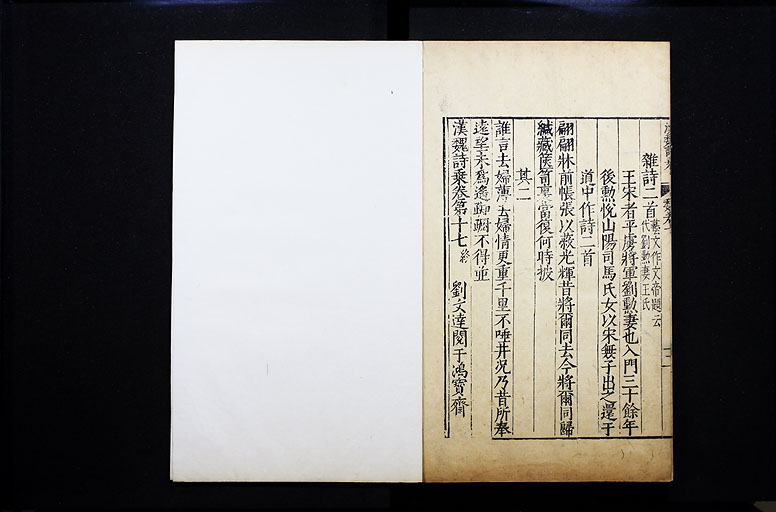 雜詩二首藝文作文帝題云
代劉勲妻王氏
王宋者平虜將軍劉勲妻也入門三十餘年
後勲悅山陽司馬氏女以宋無子出之還于
道中作詩二首
翩翩牀前帳張以蔽光輝昔將爾同去今將爾同歸
緘藏篋笥裏當復何時披
其二
誰言去婦薄去婦情更重千里不唾井况乃昔所奉
遠望未爲遙踟蹰不得並
漢魏詩乗卷第十七終 劉文達閱于鴻寶齋